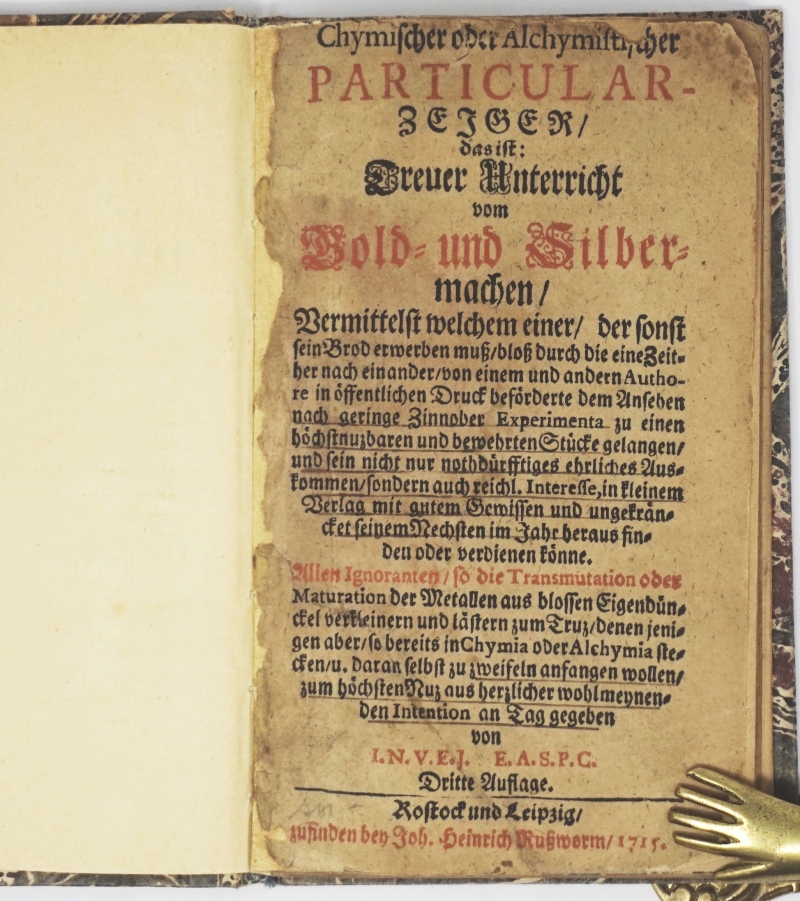 Chymischer oder Alchymistischer
PARTICULAR-
ZEIGER/
das ist:
Treuer Unterricht
vom
Gold- und Silber-
machen/
Vermittelst welchem einer/ der sonst
sein Brod erwerben muß/bloß durch die eine Zeit-
her nach einander/von einem und andern Autho-
re in öffentlichen Druck beförderte dem Ansehen
nach geringe Zinnober Experimenta zu einen
höchstnuzbaren und bewehrten Stücke gelangen/
und sein nicht nur nothdürfftiges ehrliches Aus-
kommen/sondern auch reichl. Interesse,in kleinem
Verlag mit gutem Gewissen und ungekrän-
cket seinem Nechsten im Jahr heraus fin-
den oder verdienen könne.
Allen Ignoranten/ so die Transmutation oder
Maturation der Metallen aus blossen Eigendün-
ckel verkleinern und lästern zum Truz/denen jeni-
gen aber/so bereits in Chymia oder Alchymia ste-
cken/u. daran selbst zu zweifeln anfangen wollen/
zum höchsten Nuz aus herzlicher wohlmeynen-
den Intention an Tag gegeben
von
I.N.V.E.J. E.A.S.P.C.
Dritte Auflage.
Rostock und Leipzig/
zufinden bey Joh. Heinrich Rußworm/ 1715.